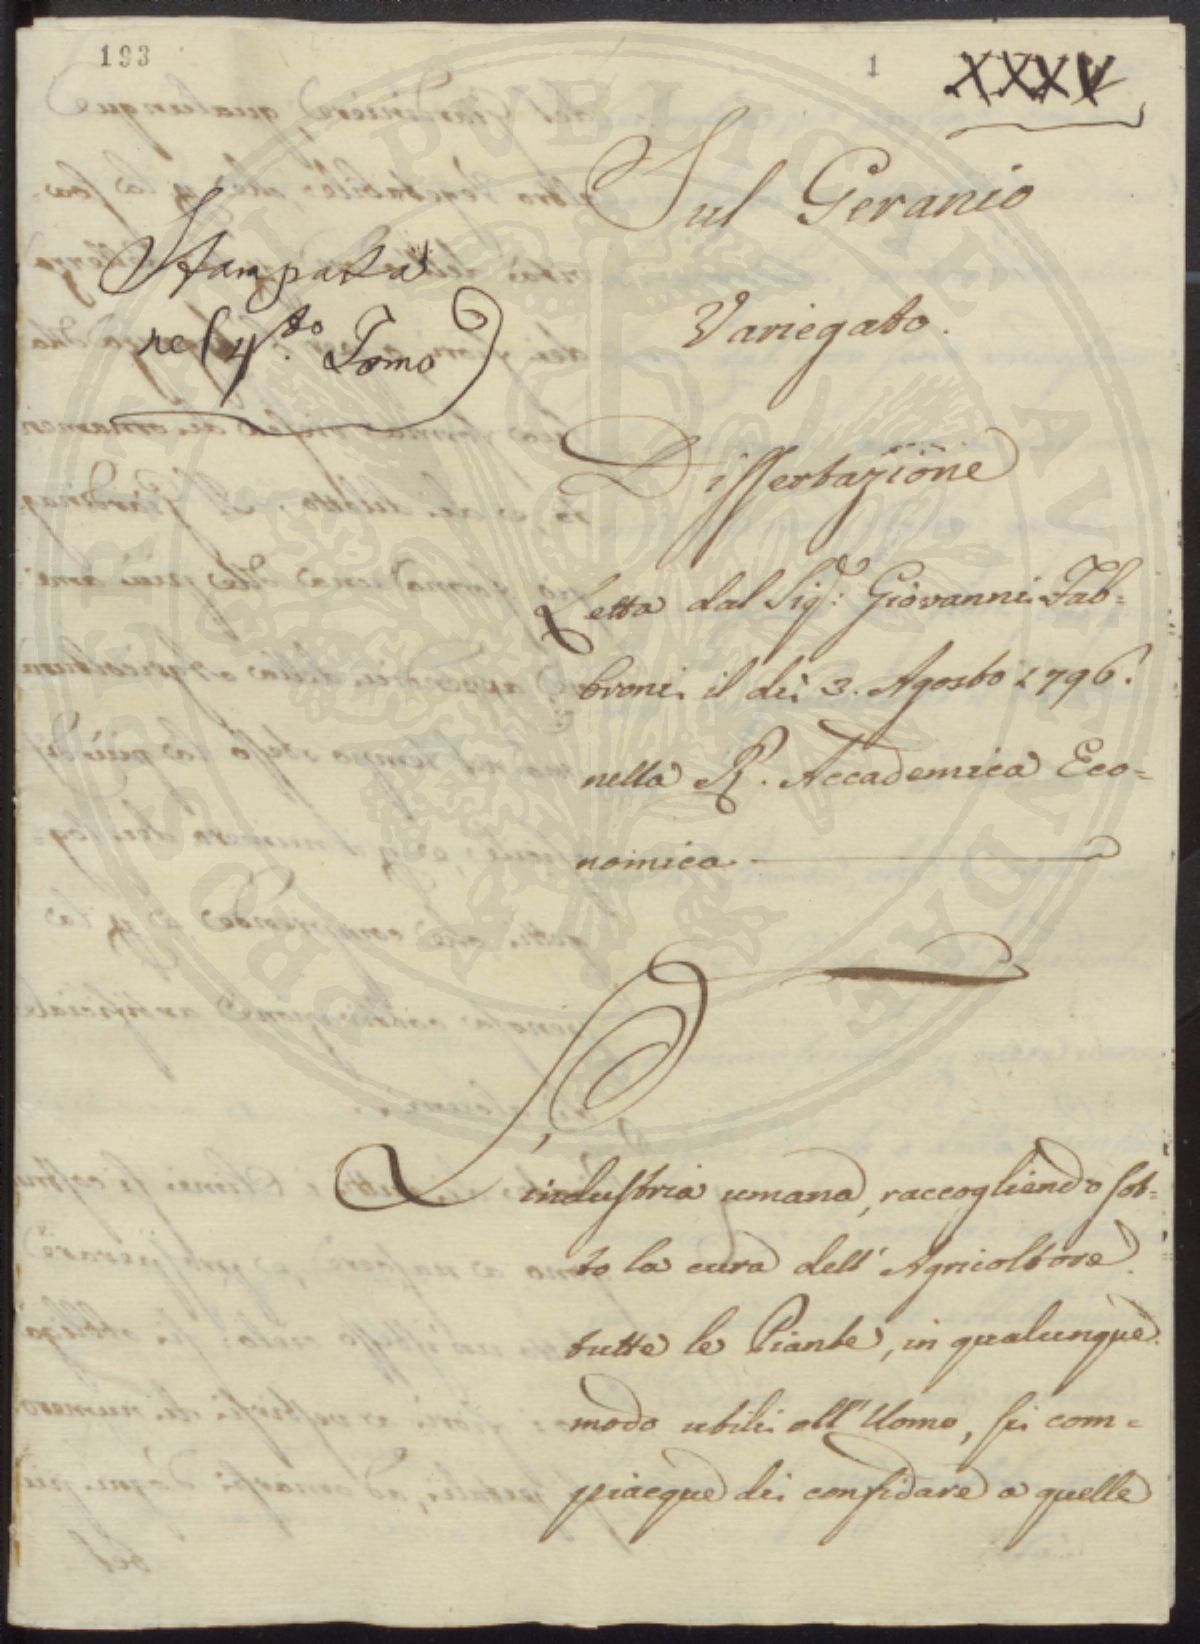 193
1
XXXV
Sul Geranio
Variegato.
Stampata
nel 4.to Tomo
Dissertazione
Letta dal Sig.r Giovanni Fab=
broni il dì 3. Agosto 1796.
nella R. Accademica Eco=
nomica
L'industria umana, raccogliendo sot=
to la cura dell' Agricoltore
tutte le Piante, in qualunque
modo utili all' Uomo, si com=
piacque di confidare a quelle